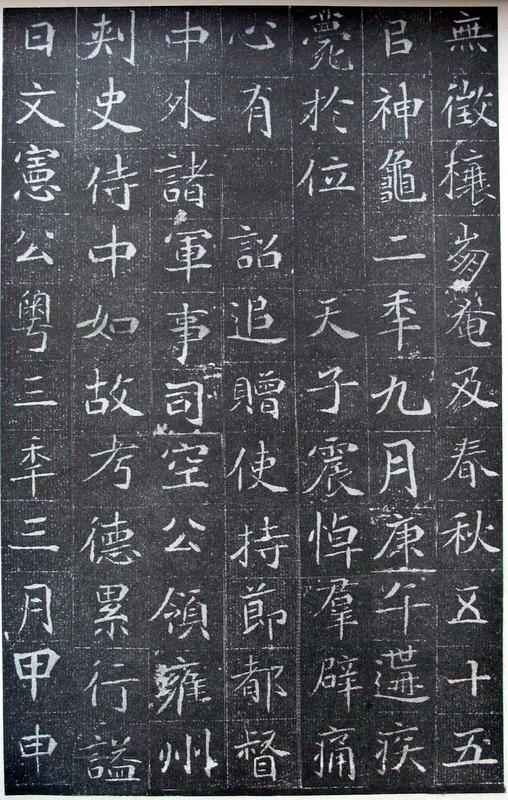 無徵欀奄及春秋五十五
㠯神龜二秊九月庚午遘疾
薨於位 天子震悼羣辟痛
心有 詔追贈使持節都督
中外諸軍事司空公領雍州
刾史侍中如故考德累行謚
曰文憲公粵三秊三月甲申